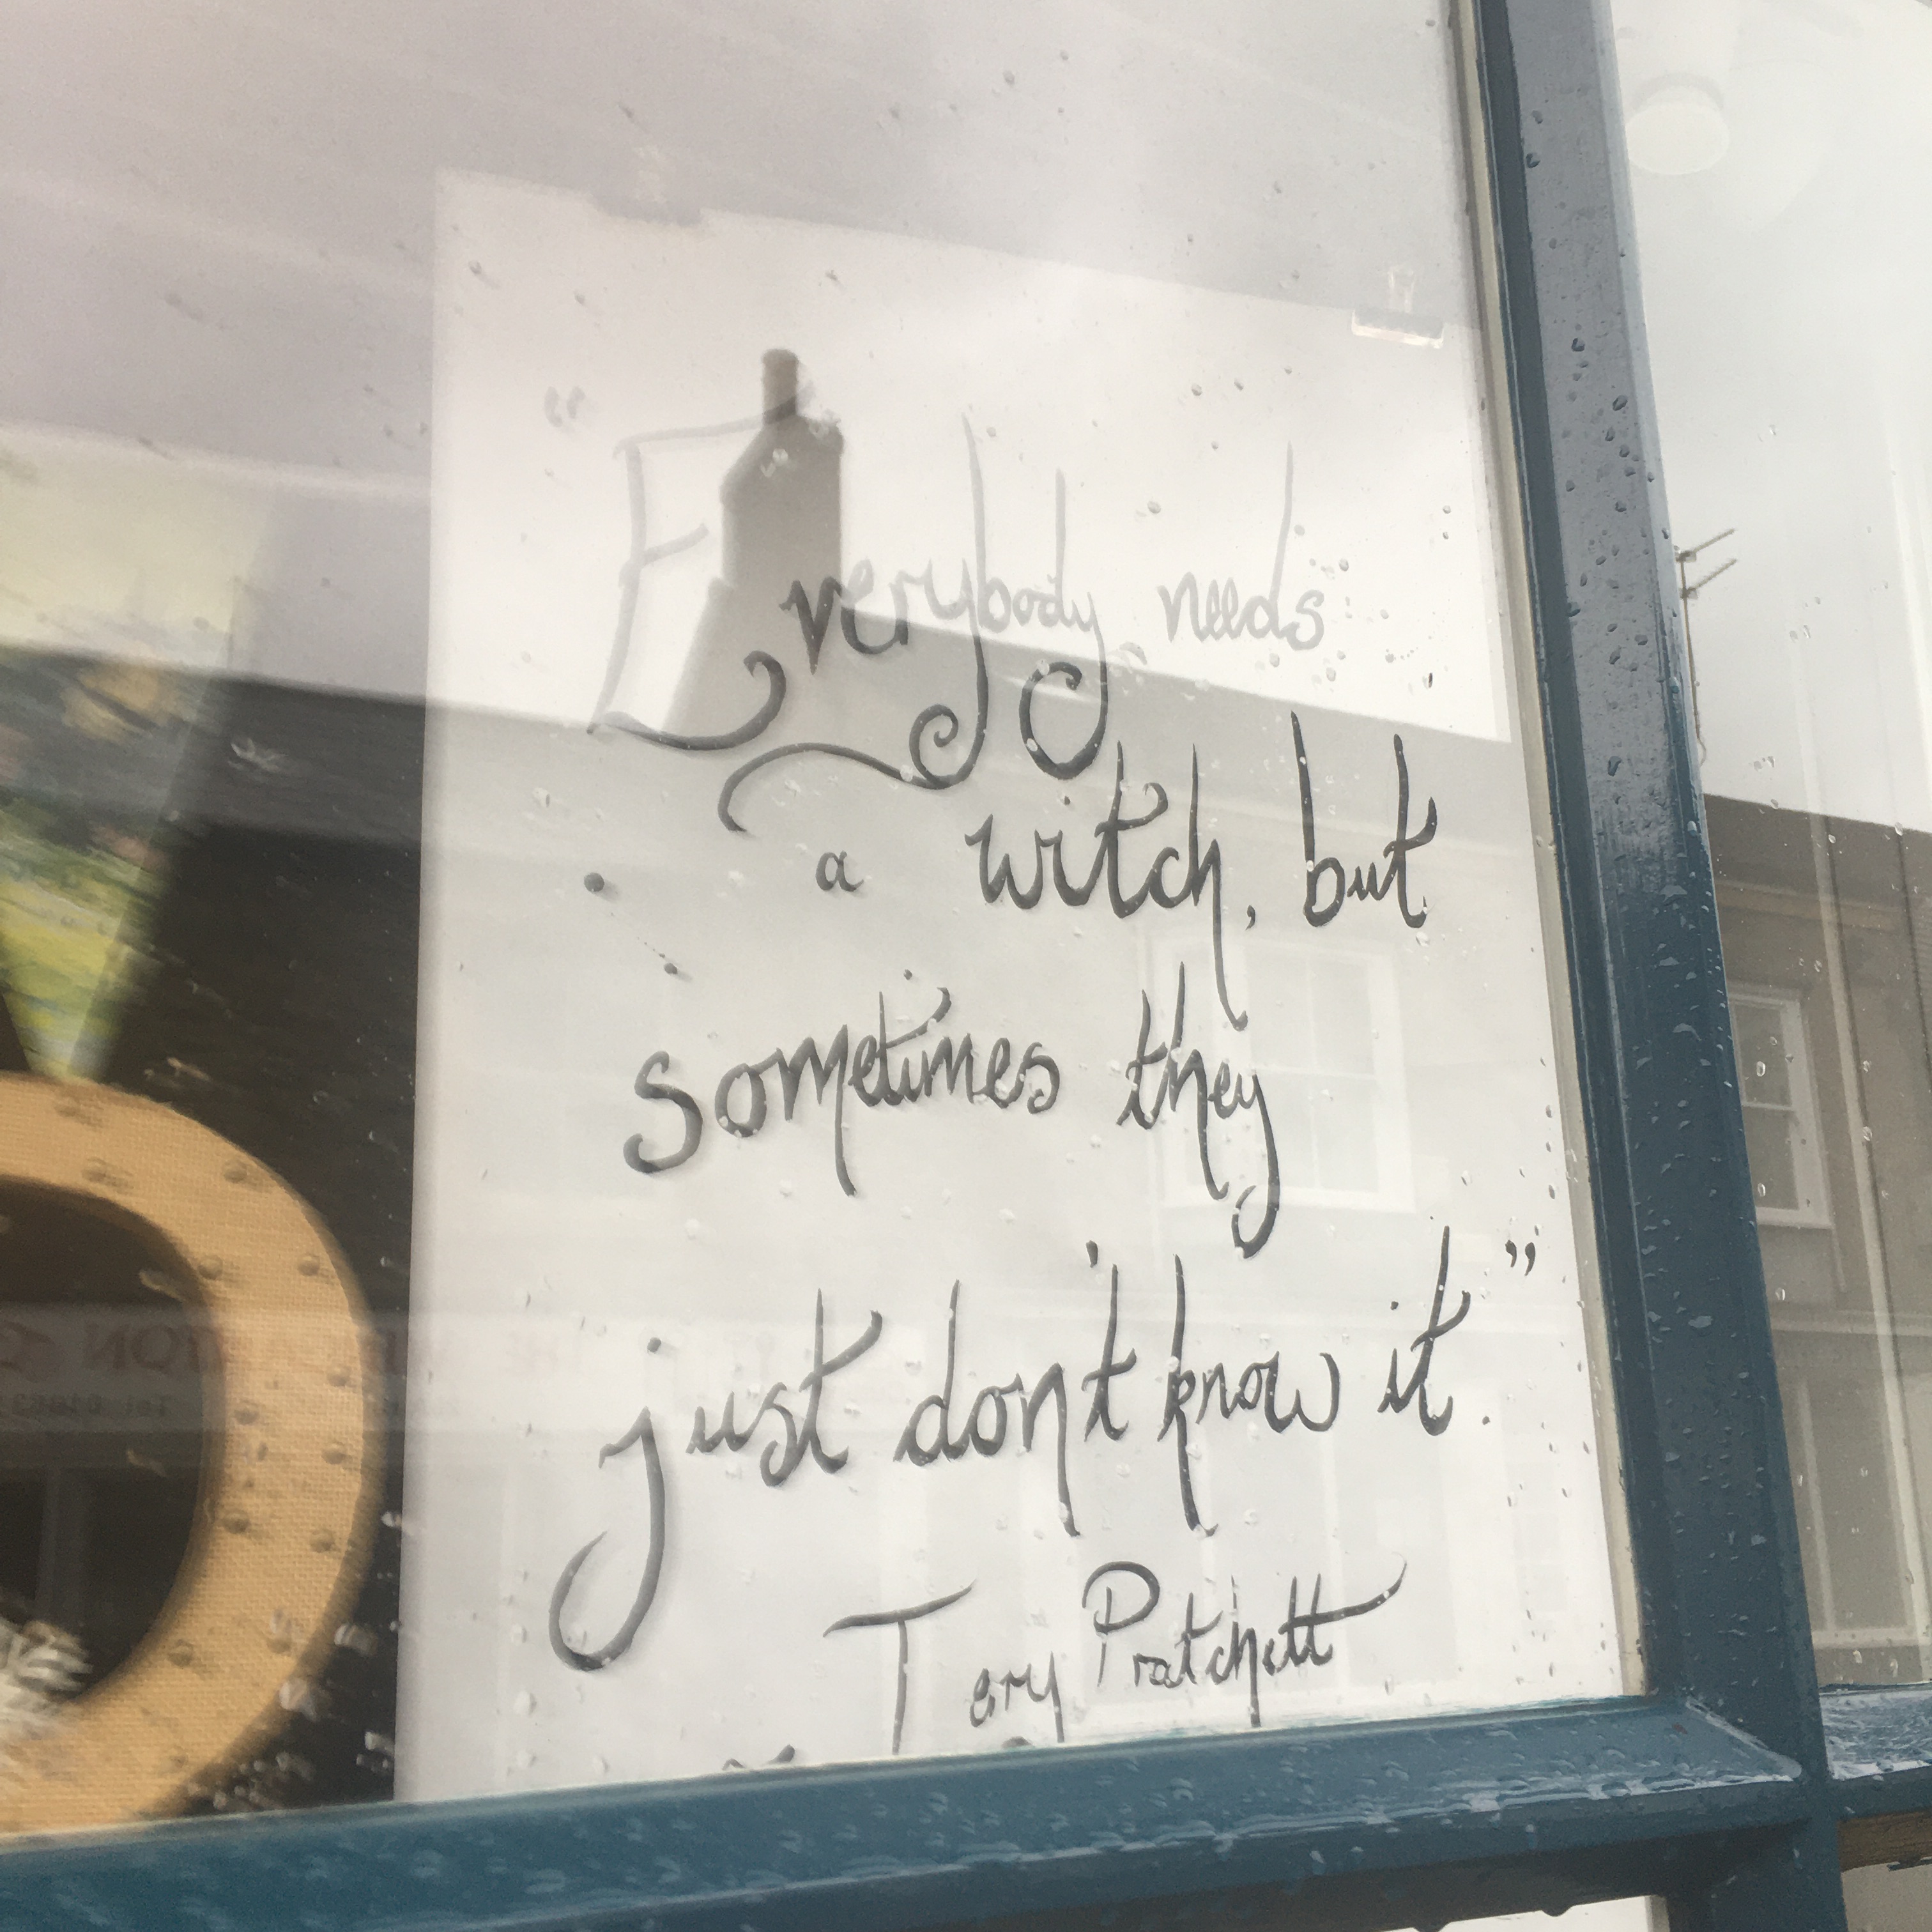 “Everybody needs
a witch, but
sometimes they
just don't know it.”
Terry Pratchett